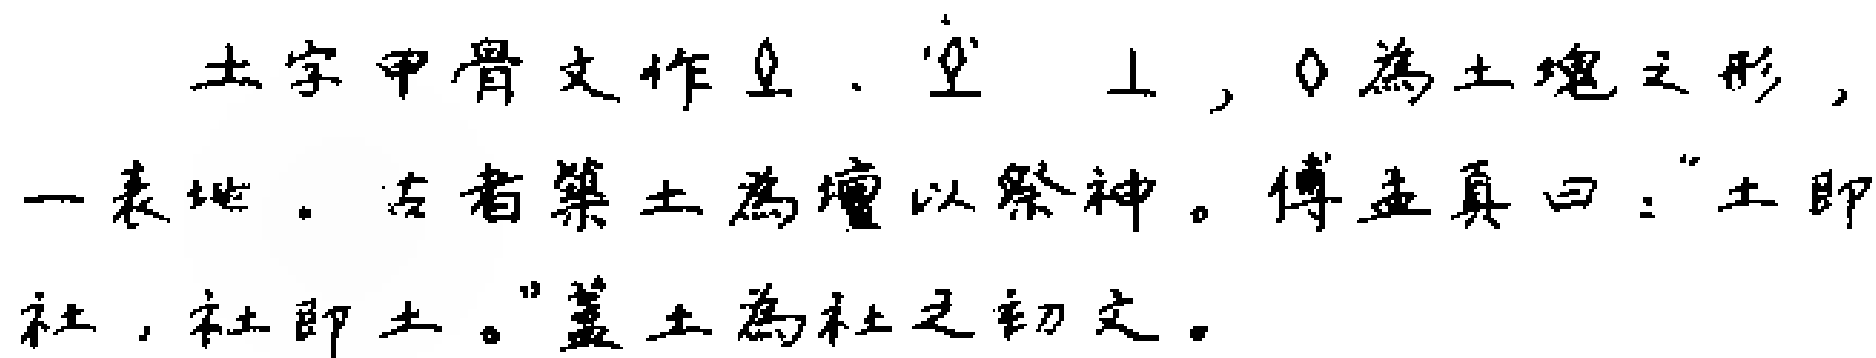 土字甲骨文作 . ⊥,◊為土塊之形,
一表地.古者築土為壇以祭神。傅孟真曰:"土即
社,社即土。"蓋土為社之初文.